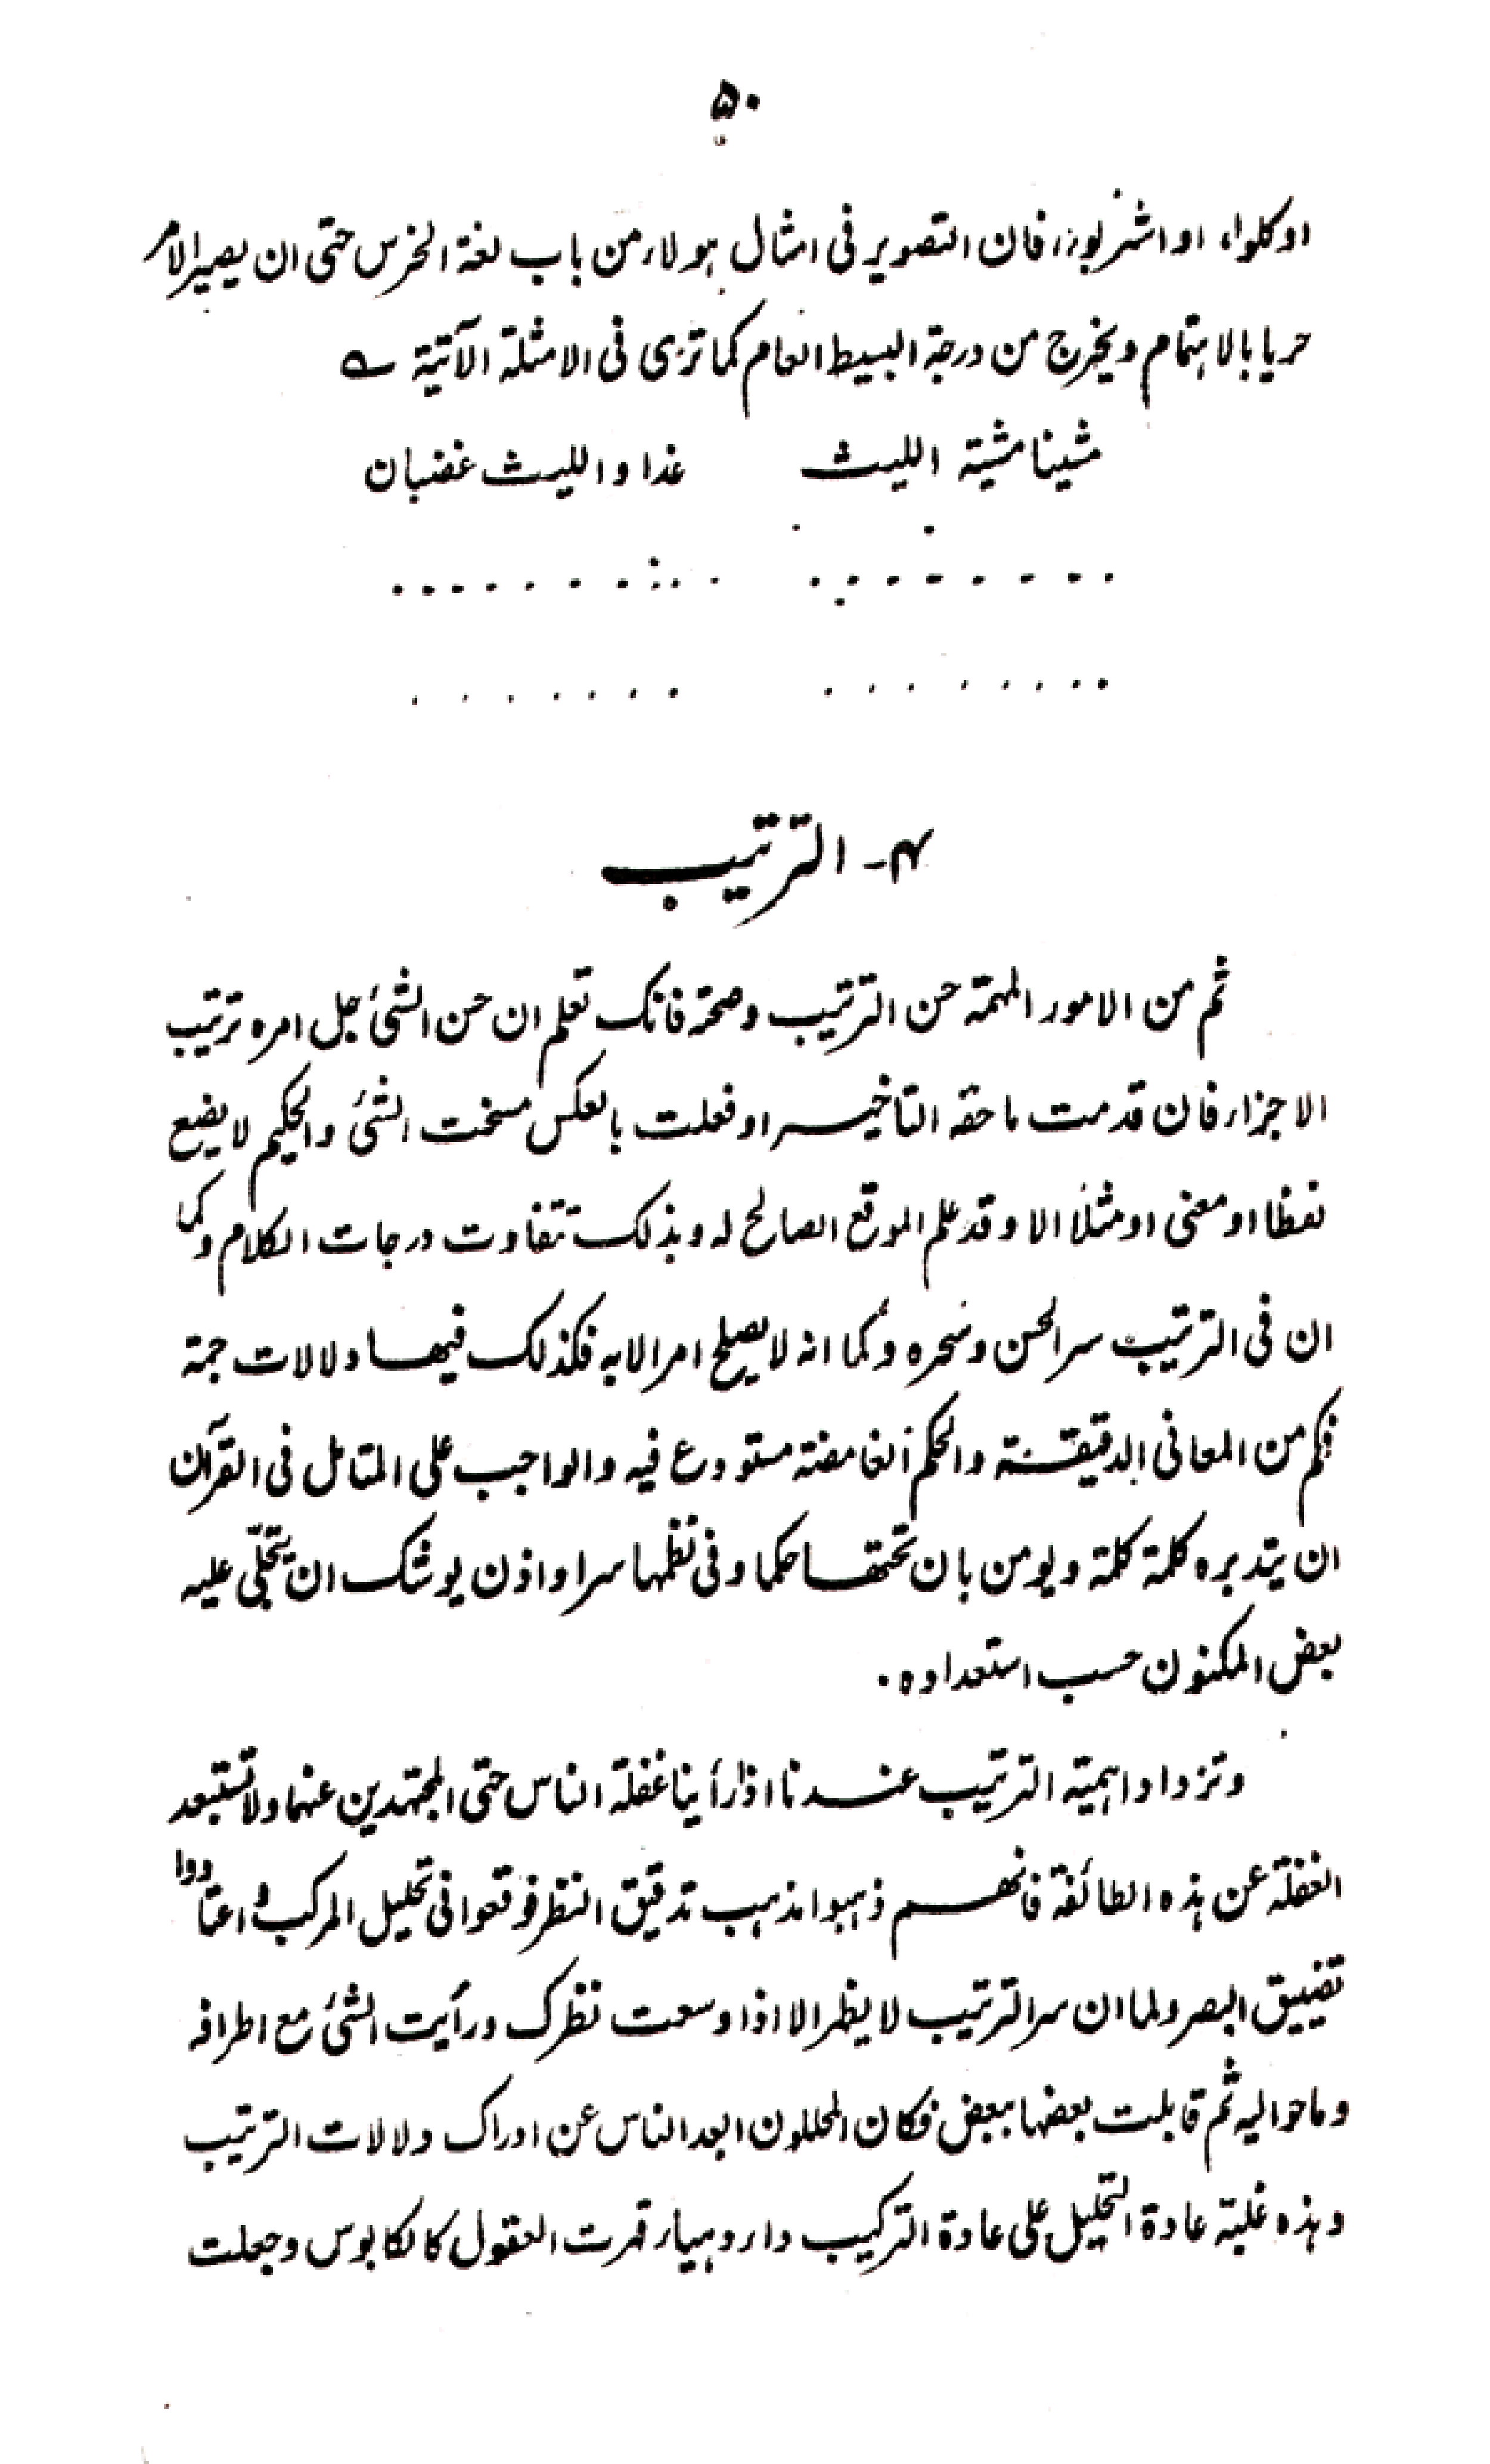 ۵۰
اوكلوا، او اشربوا، فان التصوير فى امثال ہولاء من باب لغة الخرس حتى ان يصير الامر
حريا بالاہتمام ويخرج من درجة البسيط العام كما ترى فى الامثلة الآتية ؎
مشينا مشية الليث غدا والليث غضبان
. . . . . . . . . . . . . . . .
. . . . . . . . . . . . . . . .
۴- الترتيب
ثم من الامور المہمة حسن الترتيب وصحته فانك تعلم ان حسن الشئ جل امره ترتيب
الاجزاء فان قدمت ما حقه التأخير او فعلت بالعكس مسخت الشئ والحكيم لا يضع
لفظا او معنى او مثلا الا وقد علم الموقع الصالح له وبذلك تتفاوت درجات الكلام وكما
ان فى الترتيب سر الحسن وسحره وكما انه لا يصلح امر الا به فكذلك فيها دلالات جمة
فكم من المعانى الدقيقة والحكم الغامضة مستودع فيه والواجب على المتامل فى القرآن
ان يتدبره كلمة كلمة ويومن بان تحتها حكما وفى نظمها سرا واذن يوشك ان يتجلّى عليه
بعض المكنون حسب استعداده.
وتزداد اہمية الترتيب عندنا اذا رأينا غفلة الناس حتى المجتہدين عنہا ولا تستبعد
الغفلة عن ہذه الطائفة فانهم ذہبوا مذہب تدقيق النظر فوقعوا فى تحليل المركب و اعتادوا
تضييق البصر ولما ان سر الترتيب لا يظہر الا اذا وسعت نظرك ورأيت الشئ مع اطرافه
وما حواليه ثم قابلت بعضها ببعض فكان المحللون ابعد الناس عن ادراك دلالات الترتيب
وہذه غلبة عادة التحليل على عادة التركيب داء دہياء قہرت العقول كالكابوس وجعلت